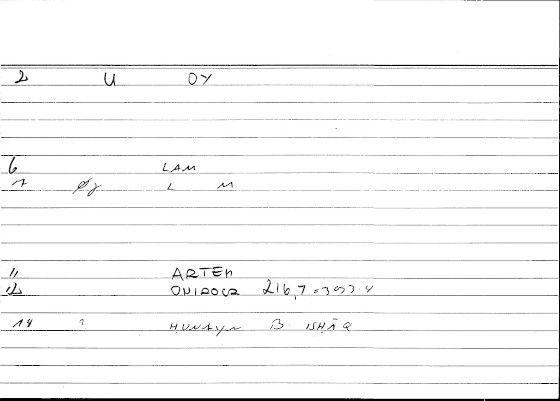 2 U OY
6 LAM
7 L M
11 ARTEM
12 ONIROCR 216,7 = 393.4
14 ? HUNAYN B ISHĀQ